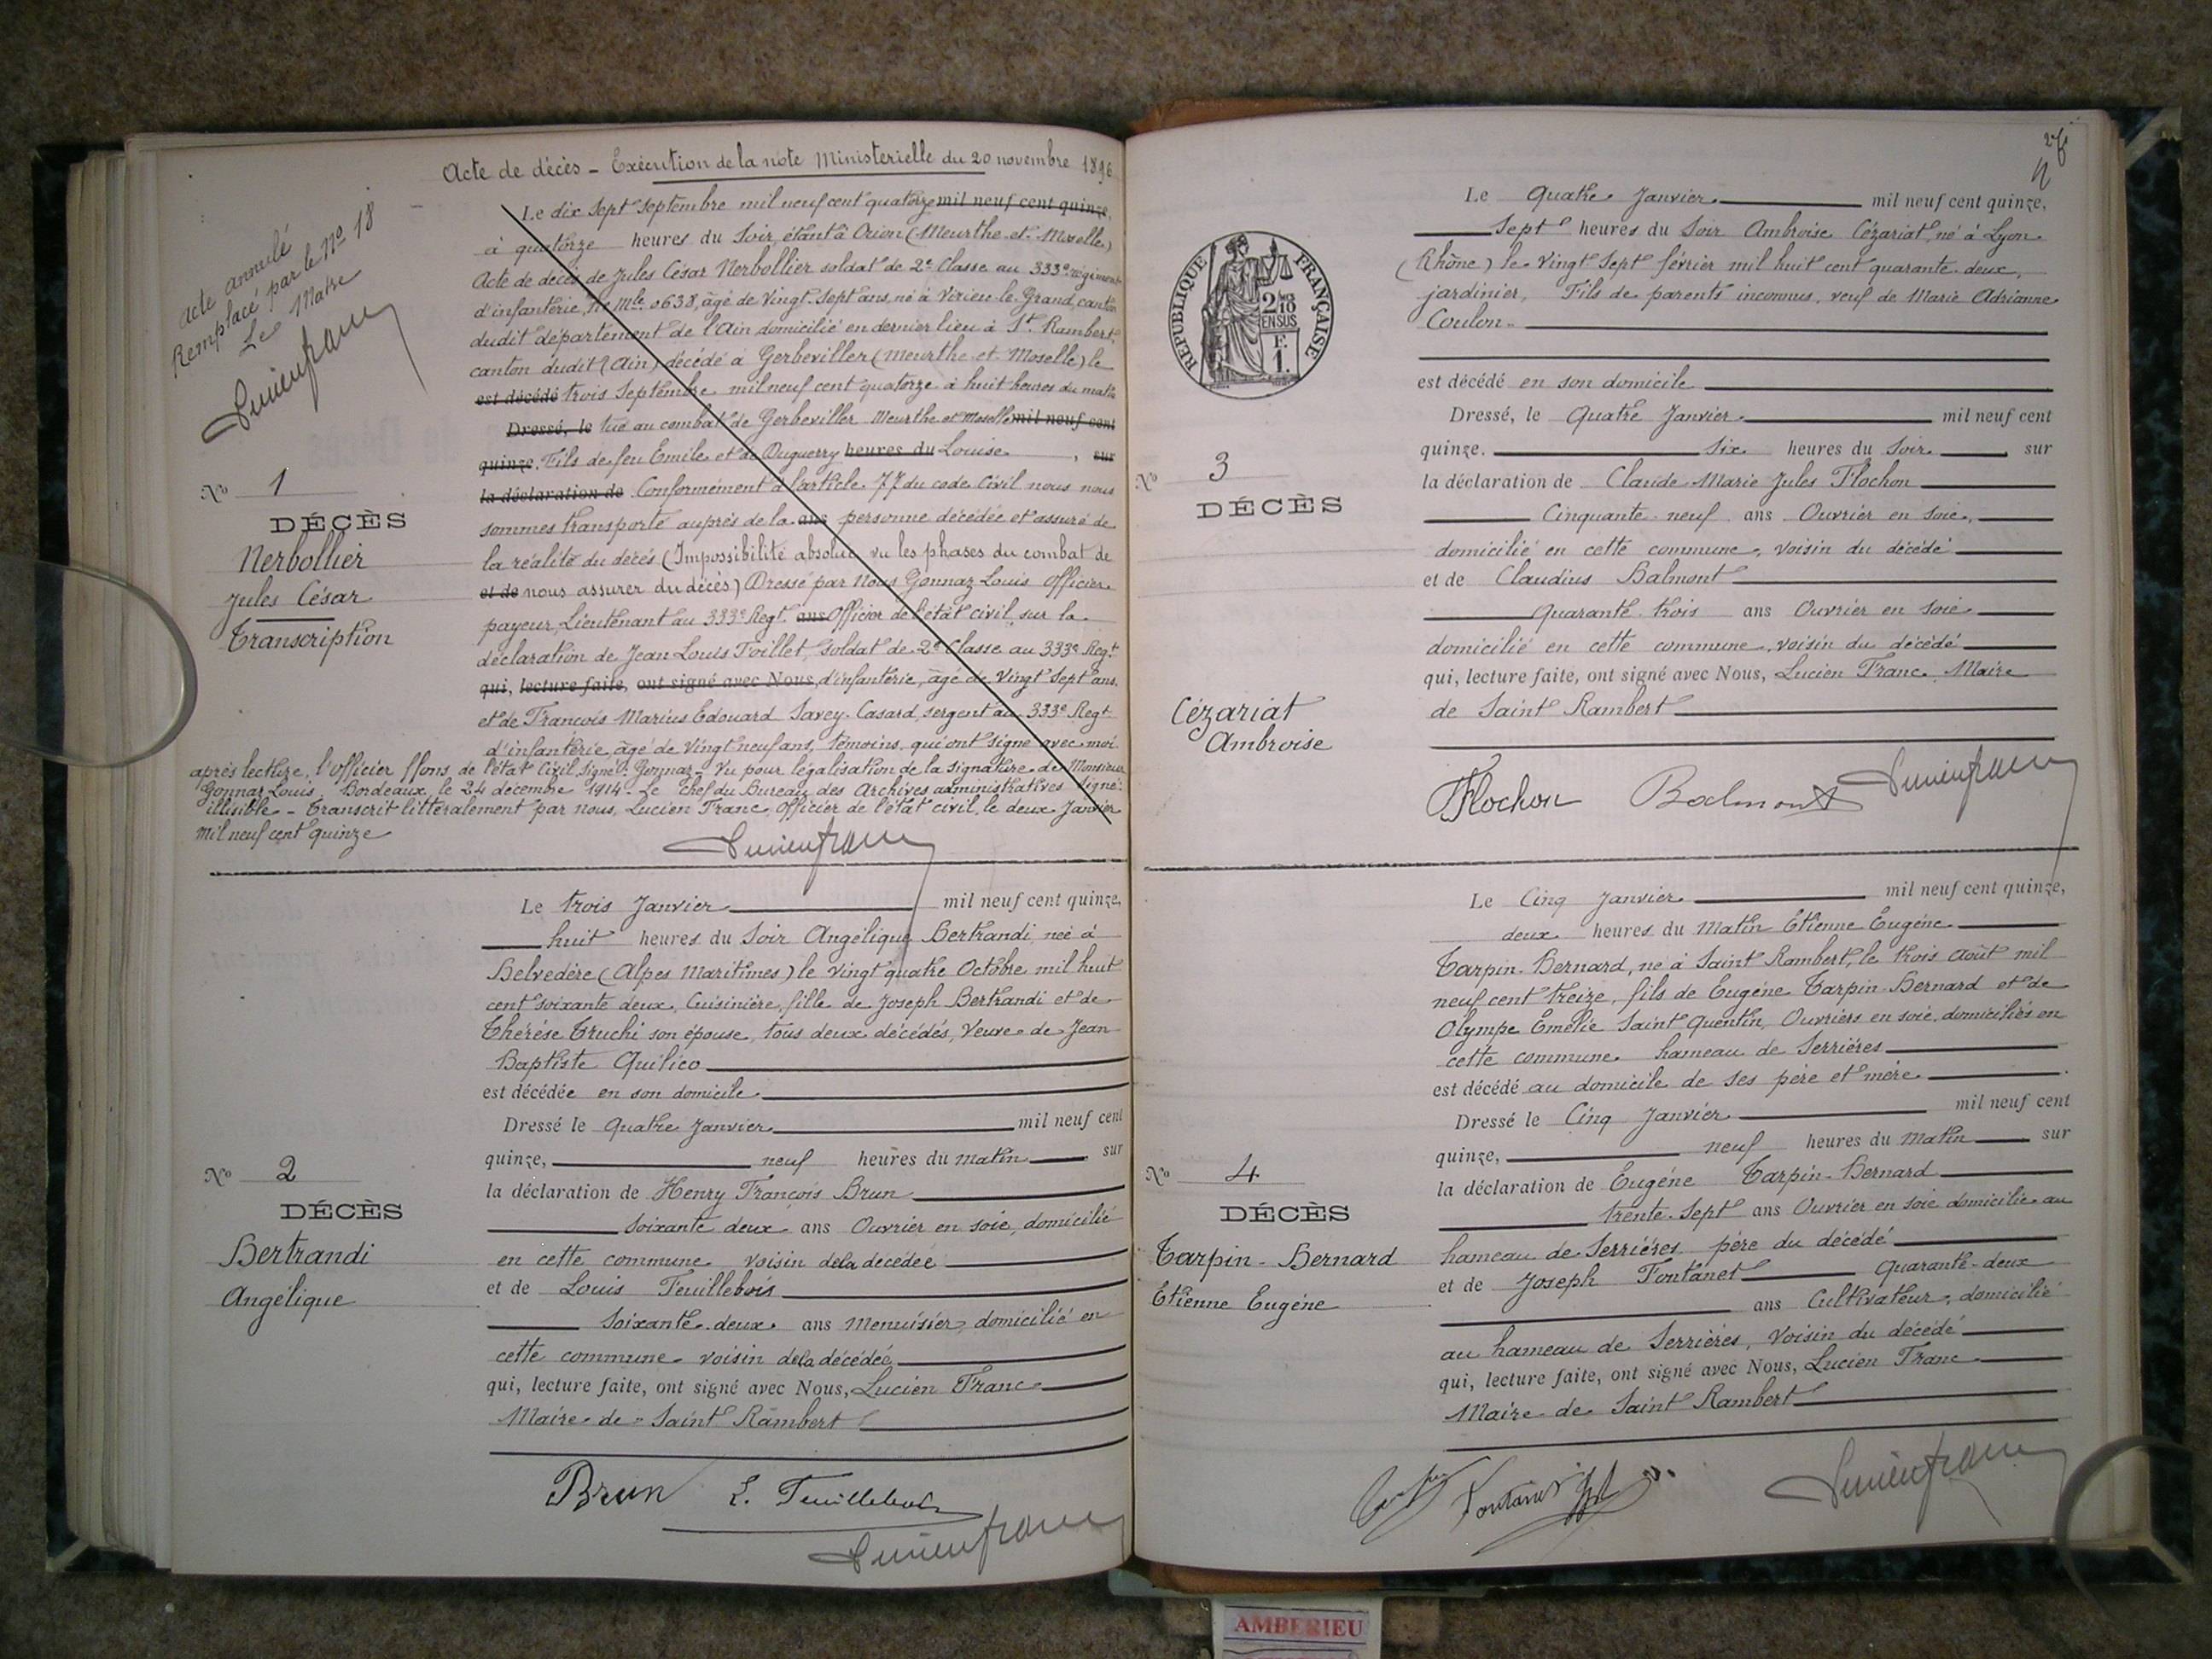 Acte de décès - Exécution de la note Ministerielle du 20 novembre 1896
Acte annulé
Remplacé par le No 18
Le Maire
Lucien franc
No 1
DÉCÈS
Nerbollier
Jules César
Transcription
Le dix Sept Septembre mil neuf cent quatorze mil neuf cent quinze,
à quatorze heures du Soir, étant à Orion (Meurthe-et-Moselle)
Acte de décès de Jules César Nerbollier soldat de 2e Classe au 333e régiment
d'infanterie, No Mle 0638, âgé de Vingt-Sept ans, né à Virieu-le-Grand, canton
dudit département de l'Ain domicilié en dernier lieu à St Rambert,
canton dudit (Ain) décédé à Gerbeviller (Meurthe-et-Moselle) le
est décédé trois Septembre mil neuf cent quatorze à huit heures du matin
Dressé, le tué au combat de Gerbeviller Meurthe et Moselle mil neuf cent
quinze, Fils de feu Emile et de Duguerry heures du Louise, sur
la déclaration de Conformément à l'article 77 du code Civil nous nous
sommes transporté auprès de la ans personne décédée et assuré de
la réalité du décès (Impossibilité absolue vu les phases du combat de
et de nous assurer du décès) Dressé par Nous Gonnaz Louis Officier
payeur, Lieutenant au 333e Regt ans Officier de l'état civil, sur la
déclaration de Jean Louis Toillet, soldat de 2e Classe au 333e Regt
qui, lecture faite, ont signé avec Nous, d'infanterie, âgé de Vingt Sept ans.
et de François Marius Edouard Savey-Casard, sergent au 333e Regt
d'infanterie âgé de Vingt neuf ans, témoins, qui ont signé avec moi
après lecture, l'Officier ffons de l'état Civil, Signé: Gonnaz - Vu pour légalisation de la signature de Monsieur
Gonnaz Louis, Bordeaux, le 24 décembre 1914 - Le Chef du Bureau des Archives administratives Signé:
illisible - Transcrit littéralement par nous, Lucien Franc, Officier de l'état civil, le deux Janvier
mil neuf cent quinze
Lucien franc
No 2
DÉCÈS
Bertrandi
Angélique
Le trois Janvier mil neuf cent quinze,
huit heures du Soir Angélique Bertrandi, née à
Belvédère (Alpes Maritimes) le vingt quatre Octobre mil huit
cent soixante deux, Cuisinière, fille de Joseph Bertrandi et de
Thérèse Truchi son épouse, tous deux décédés, Veuve de Jean
Baptiste Quilico
est décédée en son domicile
Dressé le quatre Janvier mil neuf cent
quinze, neuf heures du matin sur
la déclaration de Henry François Brun
Soixante deux ans Ouvrier en soie, domicilié
en cette commune voisin de la décédée
et de Louis Feuillebois
Soixante deux ans Menuisier, domicilié en
cette commune voisin de la décédée
qui, lecture faite, ont signé avec Nous, Lucien Franc
Maire de Saint Rambert
Brun L. Feuillebois
Lucien franc
Le Quatre Janvier mil neuf cent quinze,
Sept heures du Soir Ambroise Cézariat, né à Lyon
(Rhône) le Vingt Sept février mil huit cent quarante deux,
jardinier, Fils de parents inconnus, veuf de Marie Adrianne
Coulon
est décédé en son domicile
Dressé, le Quatre Janvier mil neuf cent
quinze. Six heures du Soir sur
la déclaration de Claude Marie Jules Flochon
Cinquante neuf ans Ouvrier en Soie,
domicilié en cette commune, voisin du décédé
et de Claudius Balmont
quarante trois ans Ouvrier en Soie
domicilié en cette commune, voisin du décédé
qui, lecture faite, ont signé avec Nous, Lucien Franc, Maire
de Saint Rambert
RÉPUBLIQUE FRANÇAISE
2/10
EN SUS
F.
1.
No 3
DÉCÈS
Cézariat
Ambroise
Flochon Balmont Lucien franc
No 4
DÉCÈS
Tarpin-Bernard
Etienne Eugène
Le Cinq Janvier mil neuf cent quinze,
deux heures du Matin Etienne Eugène
Tarpin-Bernard, né à Saint Rambert, le trois Août mil
neuf cent treize, fils de Eugène Tarpin-Bernard et de
Olympe Emélie Saint Quentin, Ouvriers en soie, domiciliés en
cette commune, hameau de Serrières
est décédé au domicile de ses père et mère
Dressé le Cinq Janvier mil neuf cent
quinze, neuf heures du matin sur
la déclaration de Eugène Tarpin-Bernard
trente-Sept ans Ouvrier en soie domicilié au
hameau de Serrières, père du décédé
et de Joseph Fontanet Quarante-deux
ans Cultivateur, domicilié
au hameau de Serrières, Voisin du décédé
qui, lecture faite, ont signé avec Nous, Lucien Franc
Maire de Saint Rambert
Lucien franc
AMBERIEU